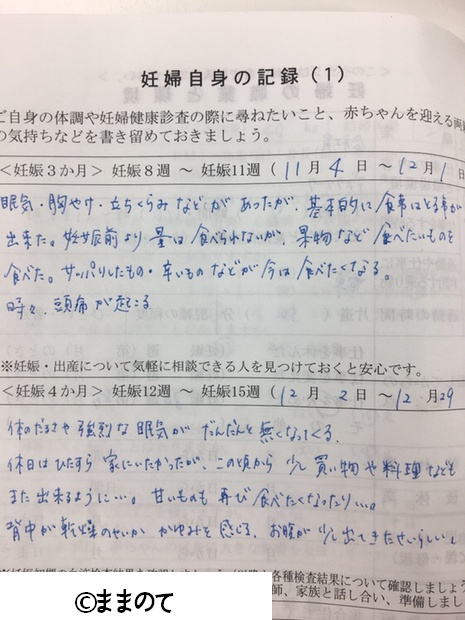 妊婦自身の記録（1）
ご自身の体調や妊婦健康診査の際に尋ねたいこと、赤ちゃんを迎える両親
の気持ちなどを書き留めておきましょう。
＜妊娠3か月＞ 妊娠8週 ～ 妊娠11週（11月4日～12月1日
眠気・胸やけ・立ちくらみなどがあったが、基本的に食事はとる事が
出来た。妊娠前より量は食べられないが、果物など食べたいものを
食べた。サッパリしたもの・辛いものなどが今は食べたくなる。
時々、頭痛が起こる
※妊娠・出産について気軽に相談できる人を見つけておくと安心です。
＜妊娠4か月＞ 妊娠12週 ～ 妊娠15週（12月2日～12月29
体のだるさや強烈な眠気がだんだんと無くなってくる。
休日はひたすら家にいたかったが、この頃から少し買い物や料理なども
また出来るように…。甘いものも再び食べたくなったり…。
背中が乾燥のせいかかゆみを感じる、お腹が少し出てきた
各種検査結果について確認しましょう
師、家族と話し合い、準備しましょ
©ままのて